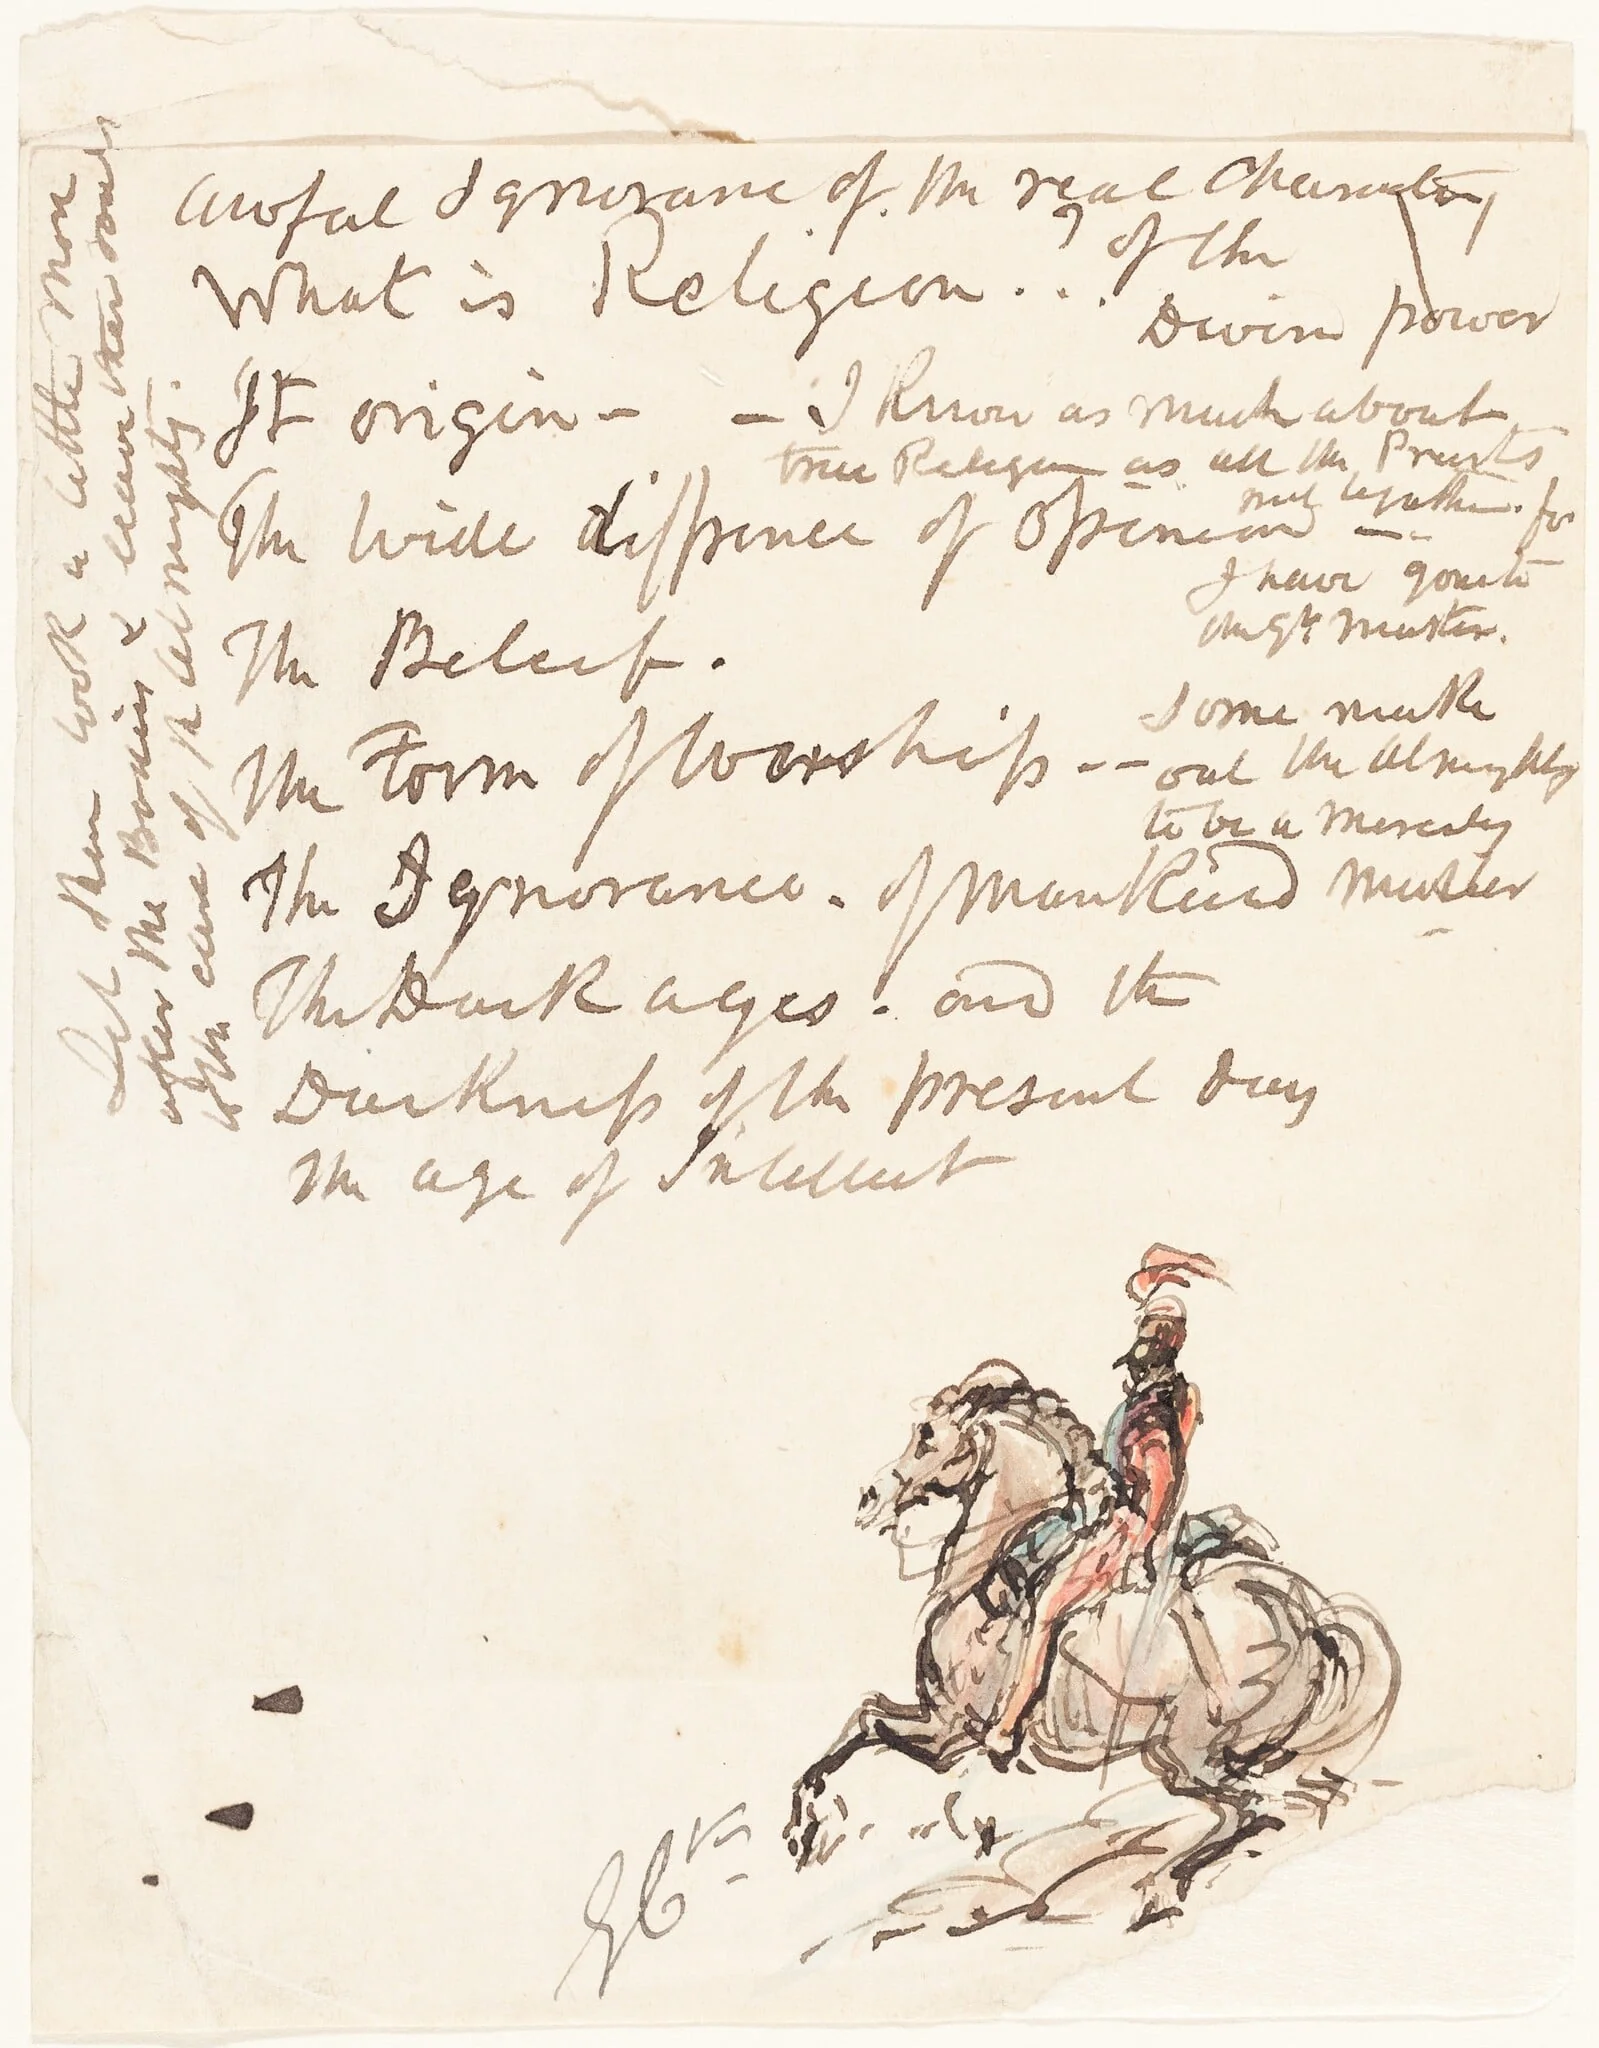 Awful Ignorance of the real Character
of the
Divine power
What is Religion . . . ?
It origin -
- I Know as much about
true Religion as all the Priests
put together. for
I have gone to
the Gt Master.
The Wide diffrence of Opinion -
The Beleif.
The Form of Worship --
Some make
out the Almighty
to be a Merciless
Master
The Ignorance. of Mankind
The Dark ages. and the
Darkness of the present day
the age of Intellect
Let them look a little more
after the Bodies & leave their souls
to the care of the Almighty.